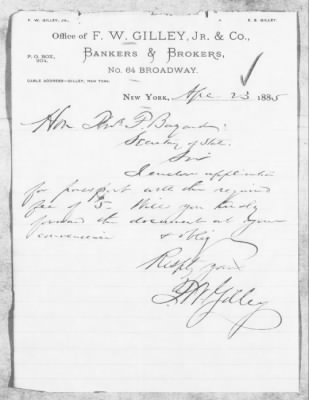 F. W. GILLEY, JR.
E. E. GILLEY.
Office of F. W. GILLEY, JR. & CO.,
BANKERS & BROKERS,
P. O. BOX,
No. 64 BROADWAY.
CABLE ADDRESS—GILLEY, NEW YORK.
NEW YORK, Apl 23 1885
Hon Thos F. Bayard
Secretary of State.
Sir
I enclose application
for passport with the required
fee of $5— Will you kindly
forward the document at your
convenience & oblige
Respy yours
F. W. Gilley